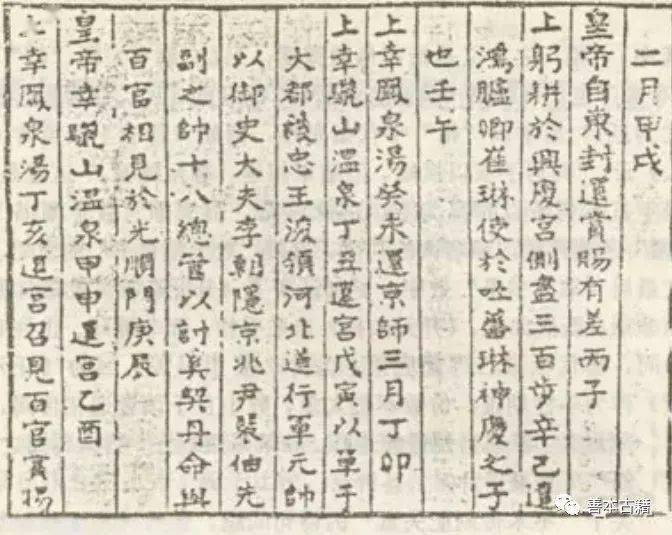 二月甲戌
皇帝自東封還賞賜有差丙子
上躬耕於興慶宮側盡三百步辛己遣
鴻臚卿崔琳使於吐蕃琳神慶之子
也壬午
上幸鳳泉湯癸未還京師三月丁卯
上幸驪山溫泉丁丑還宮戊寅以單于
大都護忠王浚領河北道行軍元帥
以御史大夫李朝隱京兆尹裴伷先
副之帥十八總管以討奚契丹命與
百官相見於光順門庚辰
皇帝幸驪山溫泉甲申還宮乙酉
上幸鳳泉湯丁亥還宮召見百官賞賜
善本古籍